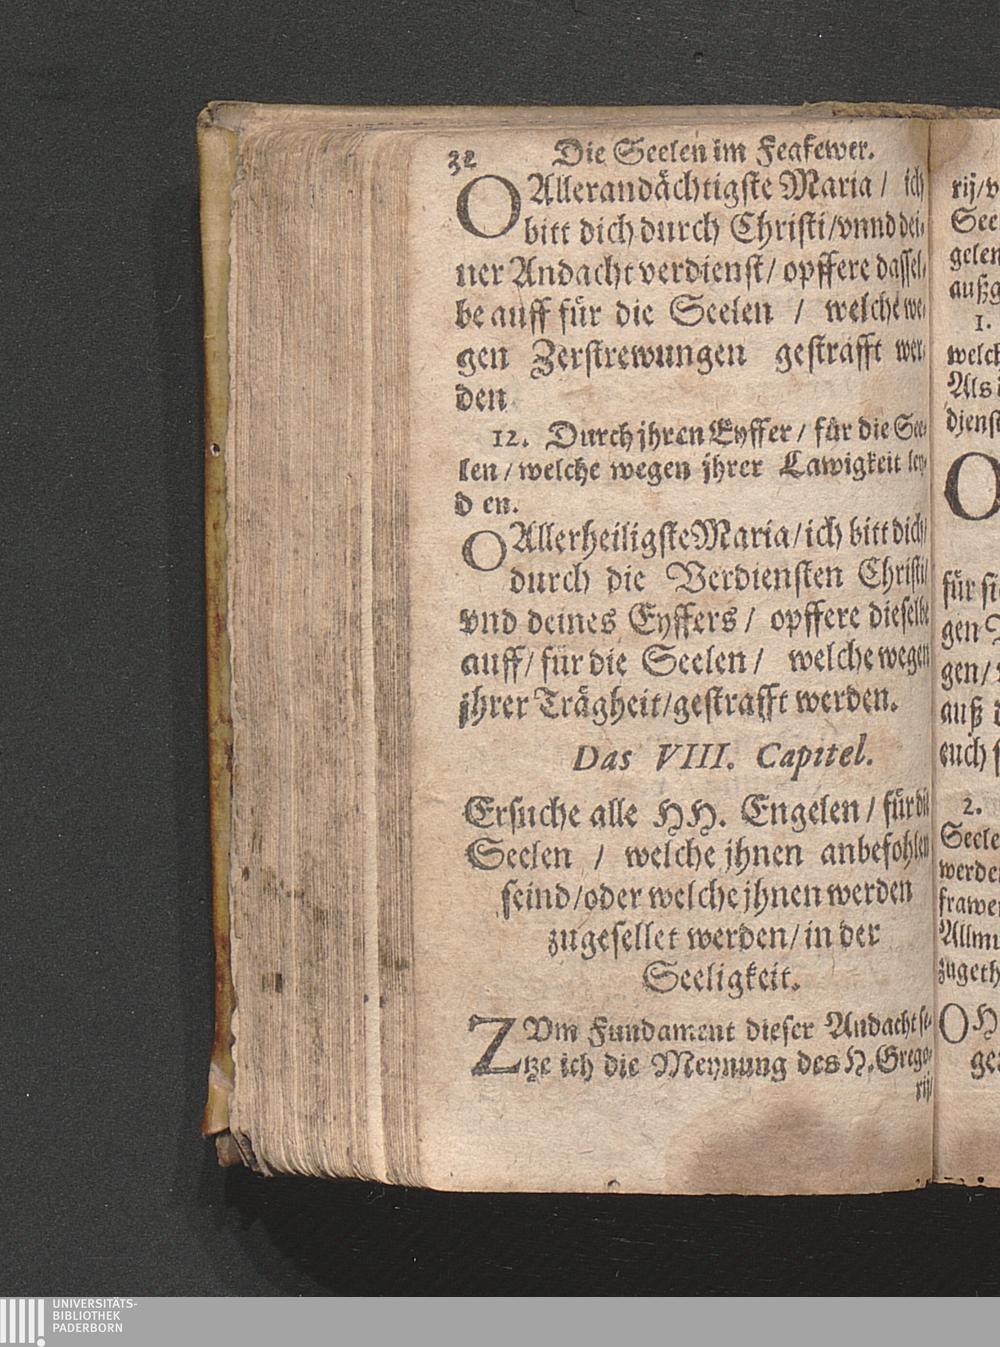 32 Die Seelen im Fegfewer.
O Allerandächtigste Maria / ich
bitt dich durch Christi/vnnd dei-
ner Andacht verdienst/ opffere dassel-
be auff für die Seelen / welche we-
gen Zerstrewungen gestrafft wer-
den
12. Durch jhren Eyffer / für die See-
len / welche wegen jhrer Lawigkeit ley-
d en.
O Allerheiligste Maria/ich bitt dich/
durch die Verdiensten Christi/
vnd deines Eyffers / opffere dieselbe
auff/ für die Seelen / welche wegen
jhrer Trägheit/gestrafft werden.
Das VIII. Capitel.
Ersuche alle HH. Engelen / für die
Seelen / welche jhnen anbefohlen
seind/oder welche jhnen werden
zugesellet werden/ in der
Seeligkeit.
ZVm Fundament dieser Andacht se-
tze ich die Meynung des H. Grego-
rij/
rij/v
See
gelen
außg
1.
welch
Als d
djenst
O
für sie
gen
gen/
auß d
euch s
2.
Seele
werden
frawen
Allmu
zugeth
OH
ge
UNIVERSITÄTS-
BIBLIOTHEK
PADERBORN